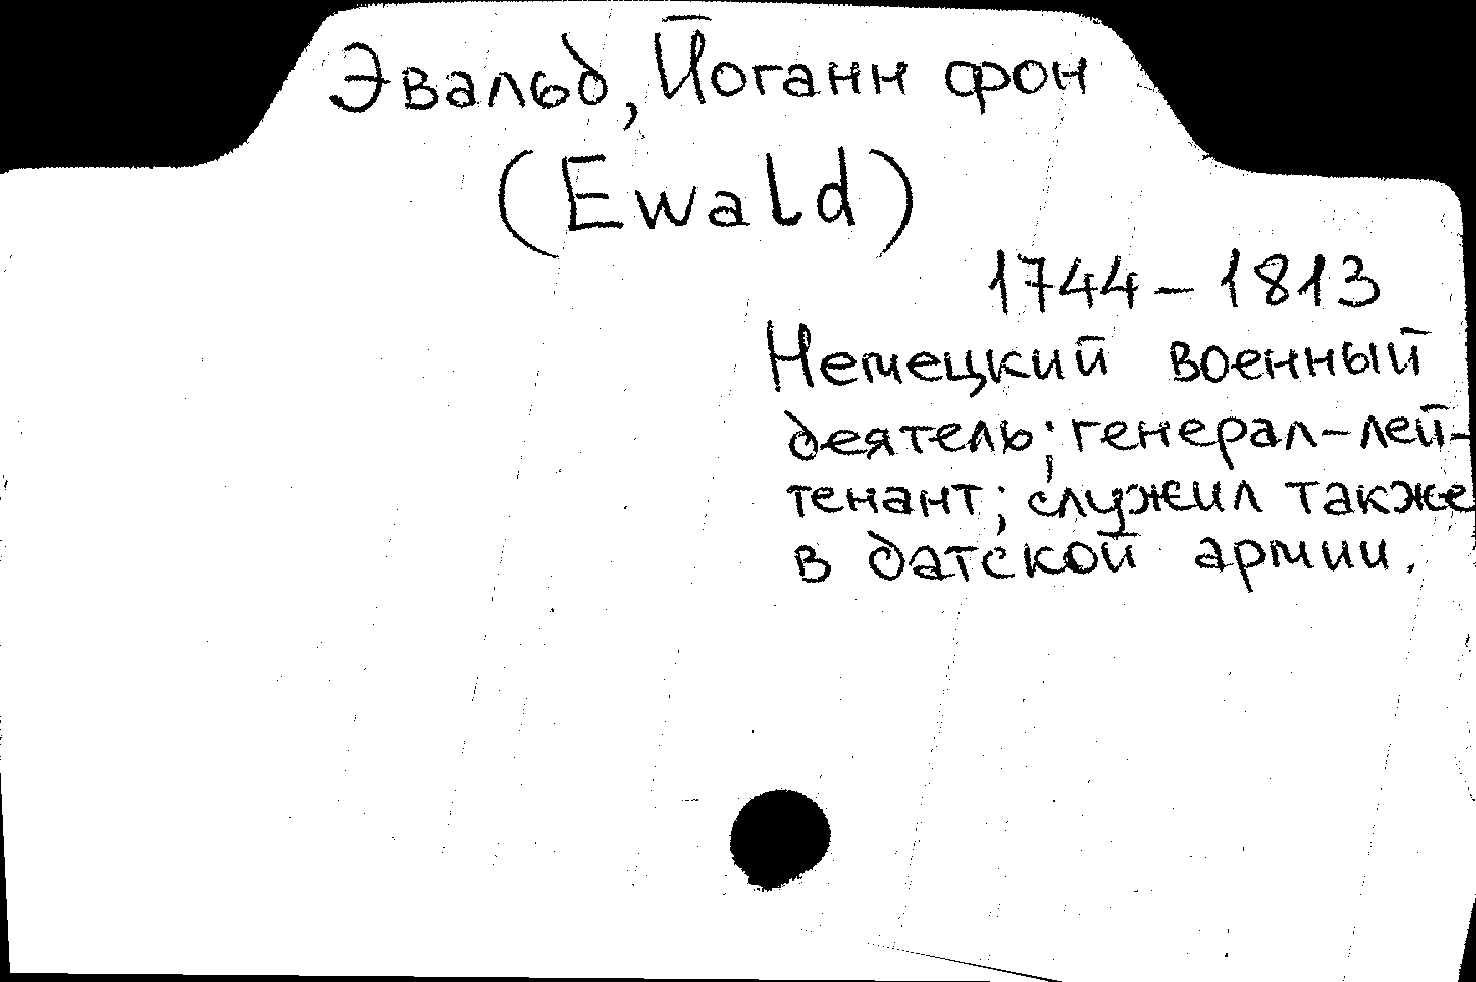 Эвальд, Йоганн фон
(Ewald)
1744-1813
Немецкий военный
деятель; генерал-лей-
тенант; служил также
в датской армии.